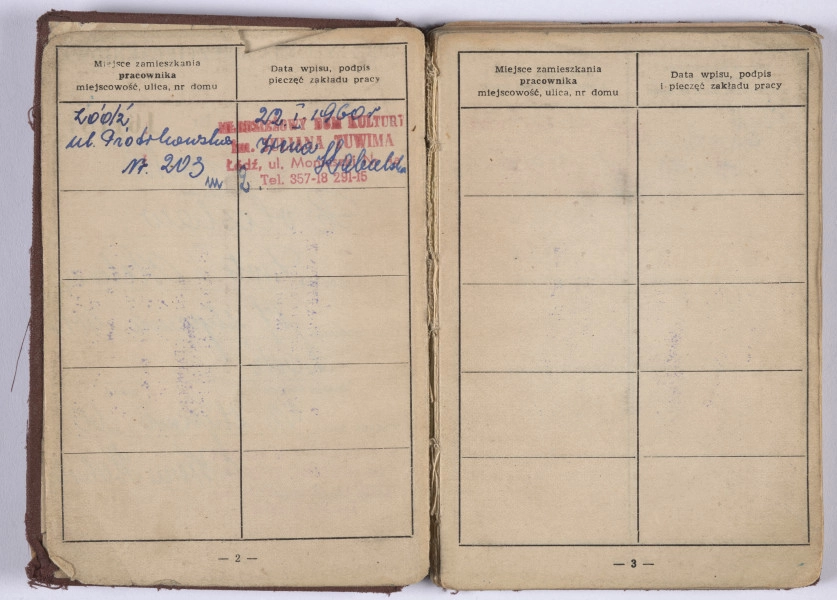 Miejsce zamieszkania
pracownika
miejscowość, ulica, nr domu
Data wpisu, podpis
pieczęć zakładu pracy
Łódź
ul. Piotrkowska
Nr. 203
22. I. 1960 r
DOM KULTURY
im. JULIANA TUWIMA
Łódź, ul.
Tel. 357-18 291-15
Irena
— 2 —
Miejsce zamieszkania
pracownika
miejscowość, ulica, nr domu
Data wpisu, podpis
i pieczęć zakładu pracy
— 3 —